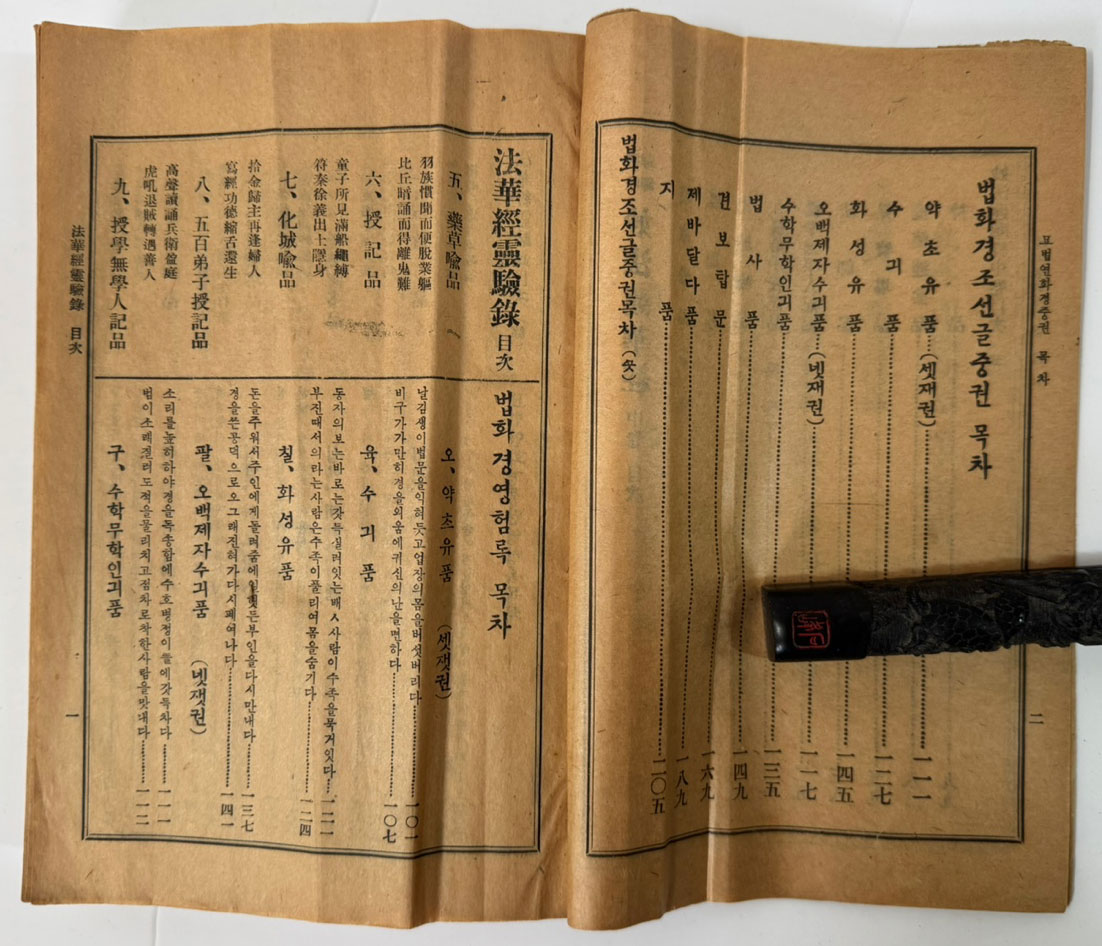 묘법연화경중권 목차
법화경조선글중권 목차
약초유품……(셋재권)……一一一
수긔품……一二七
화성유품……一四五
오백제자수긔품……(넷재권)……一一七
수학무학인긔품……一三五
법사품……一四九
견보탑문……一六九
제바달다품……一八九
지품……二〇五
법화경조선글중권목차(終)
二
法華經靈驗錄 目次
五、藥草喩品
羽族慣聞而便脫業軀
比丘暗誦而得離鬼難
六、授記品
童子所見滿船繩縛
符秦徐義出土隱身
七、化城喩品
拾金歸主再逢婦人
寫經功德縮舌還生
八、五百弟子授記品
高聲讀誦兵衛盈庭
虎吼退賊轉遇善人
九、授學無學人記品
법화경영험록 목차
오、약초유품 (셋잿권)
날김생이법문을익혀듯고업장의몸을버섯버리다……一〇一
비구가가만히경을외움에귀신의난을면하다……一〇七
육、수긔품
동자의보는바로는갓득실려잇는배ㅅ사람이수족을묵거잇다……一二一
부진때서의라는사람은수족이풀리여몸을숨기다……一二四
칠、화성유품
돈을주워서주인에게돌려줌에일헛든부인을다시만내다……一三七
경을쓴공덕으로오그래진혀가다시폐여나다……一四一
팔、오백제자수긔품 (넷잿권)
소리를놉히하야경을독송함에수호병정이뜰에갓득차다……一一一
범이소래질러도적을물리치고점차로착한사람을맛내다……一一二
구、수학무학인긔품
法華經靈驗錄 目次
一